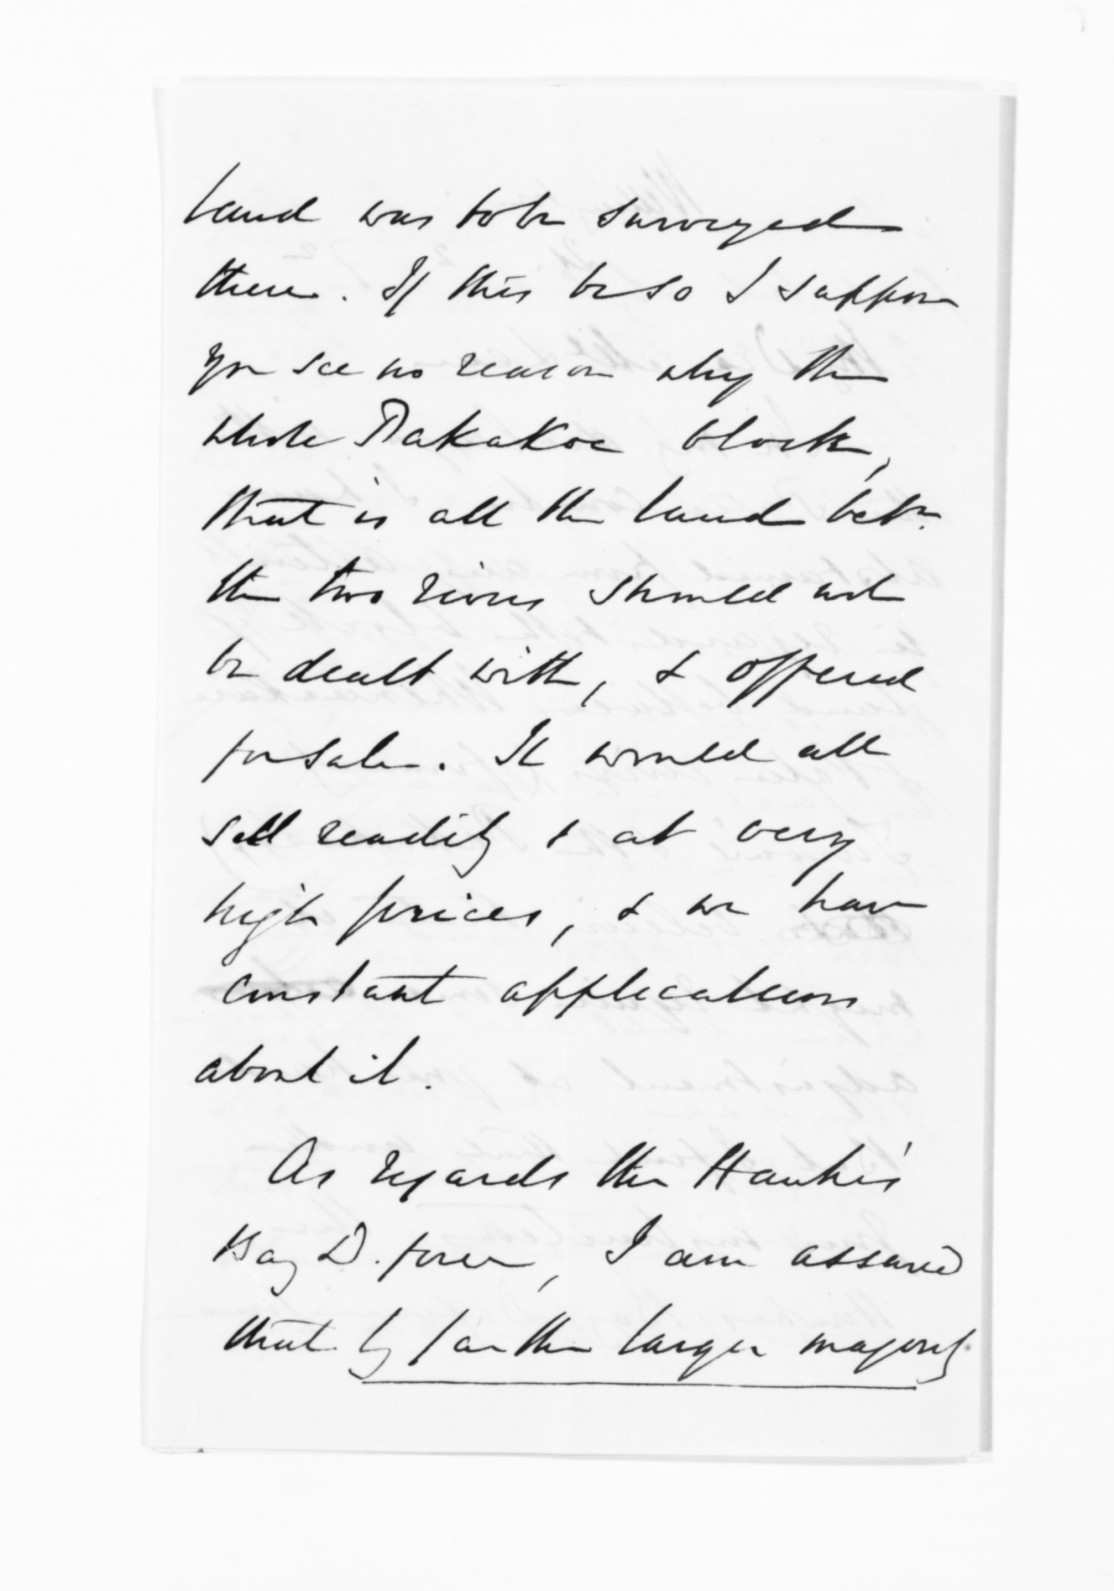 land was to be surveyed
there. If this be so I suppose
you see no reason why the
whole block,
that is all the land betn
the two rivers should not
be dealt with, & offered
for sale. It would all
sell readily & at very
high prices, & we have
constant applications
about it.
As regards the Hawke's
Bay D. force, I am assured
that by far the larger majority